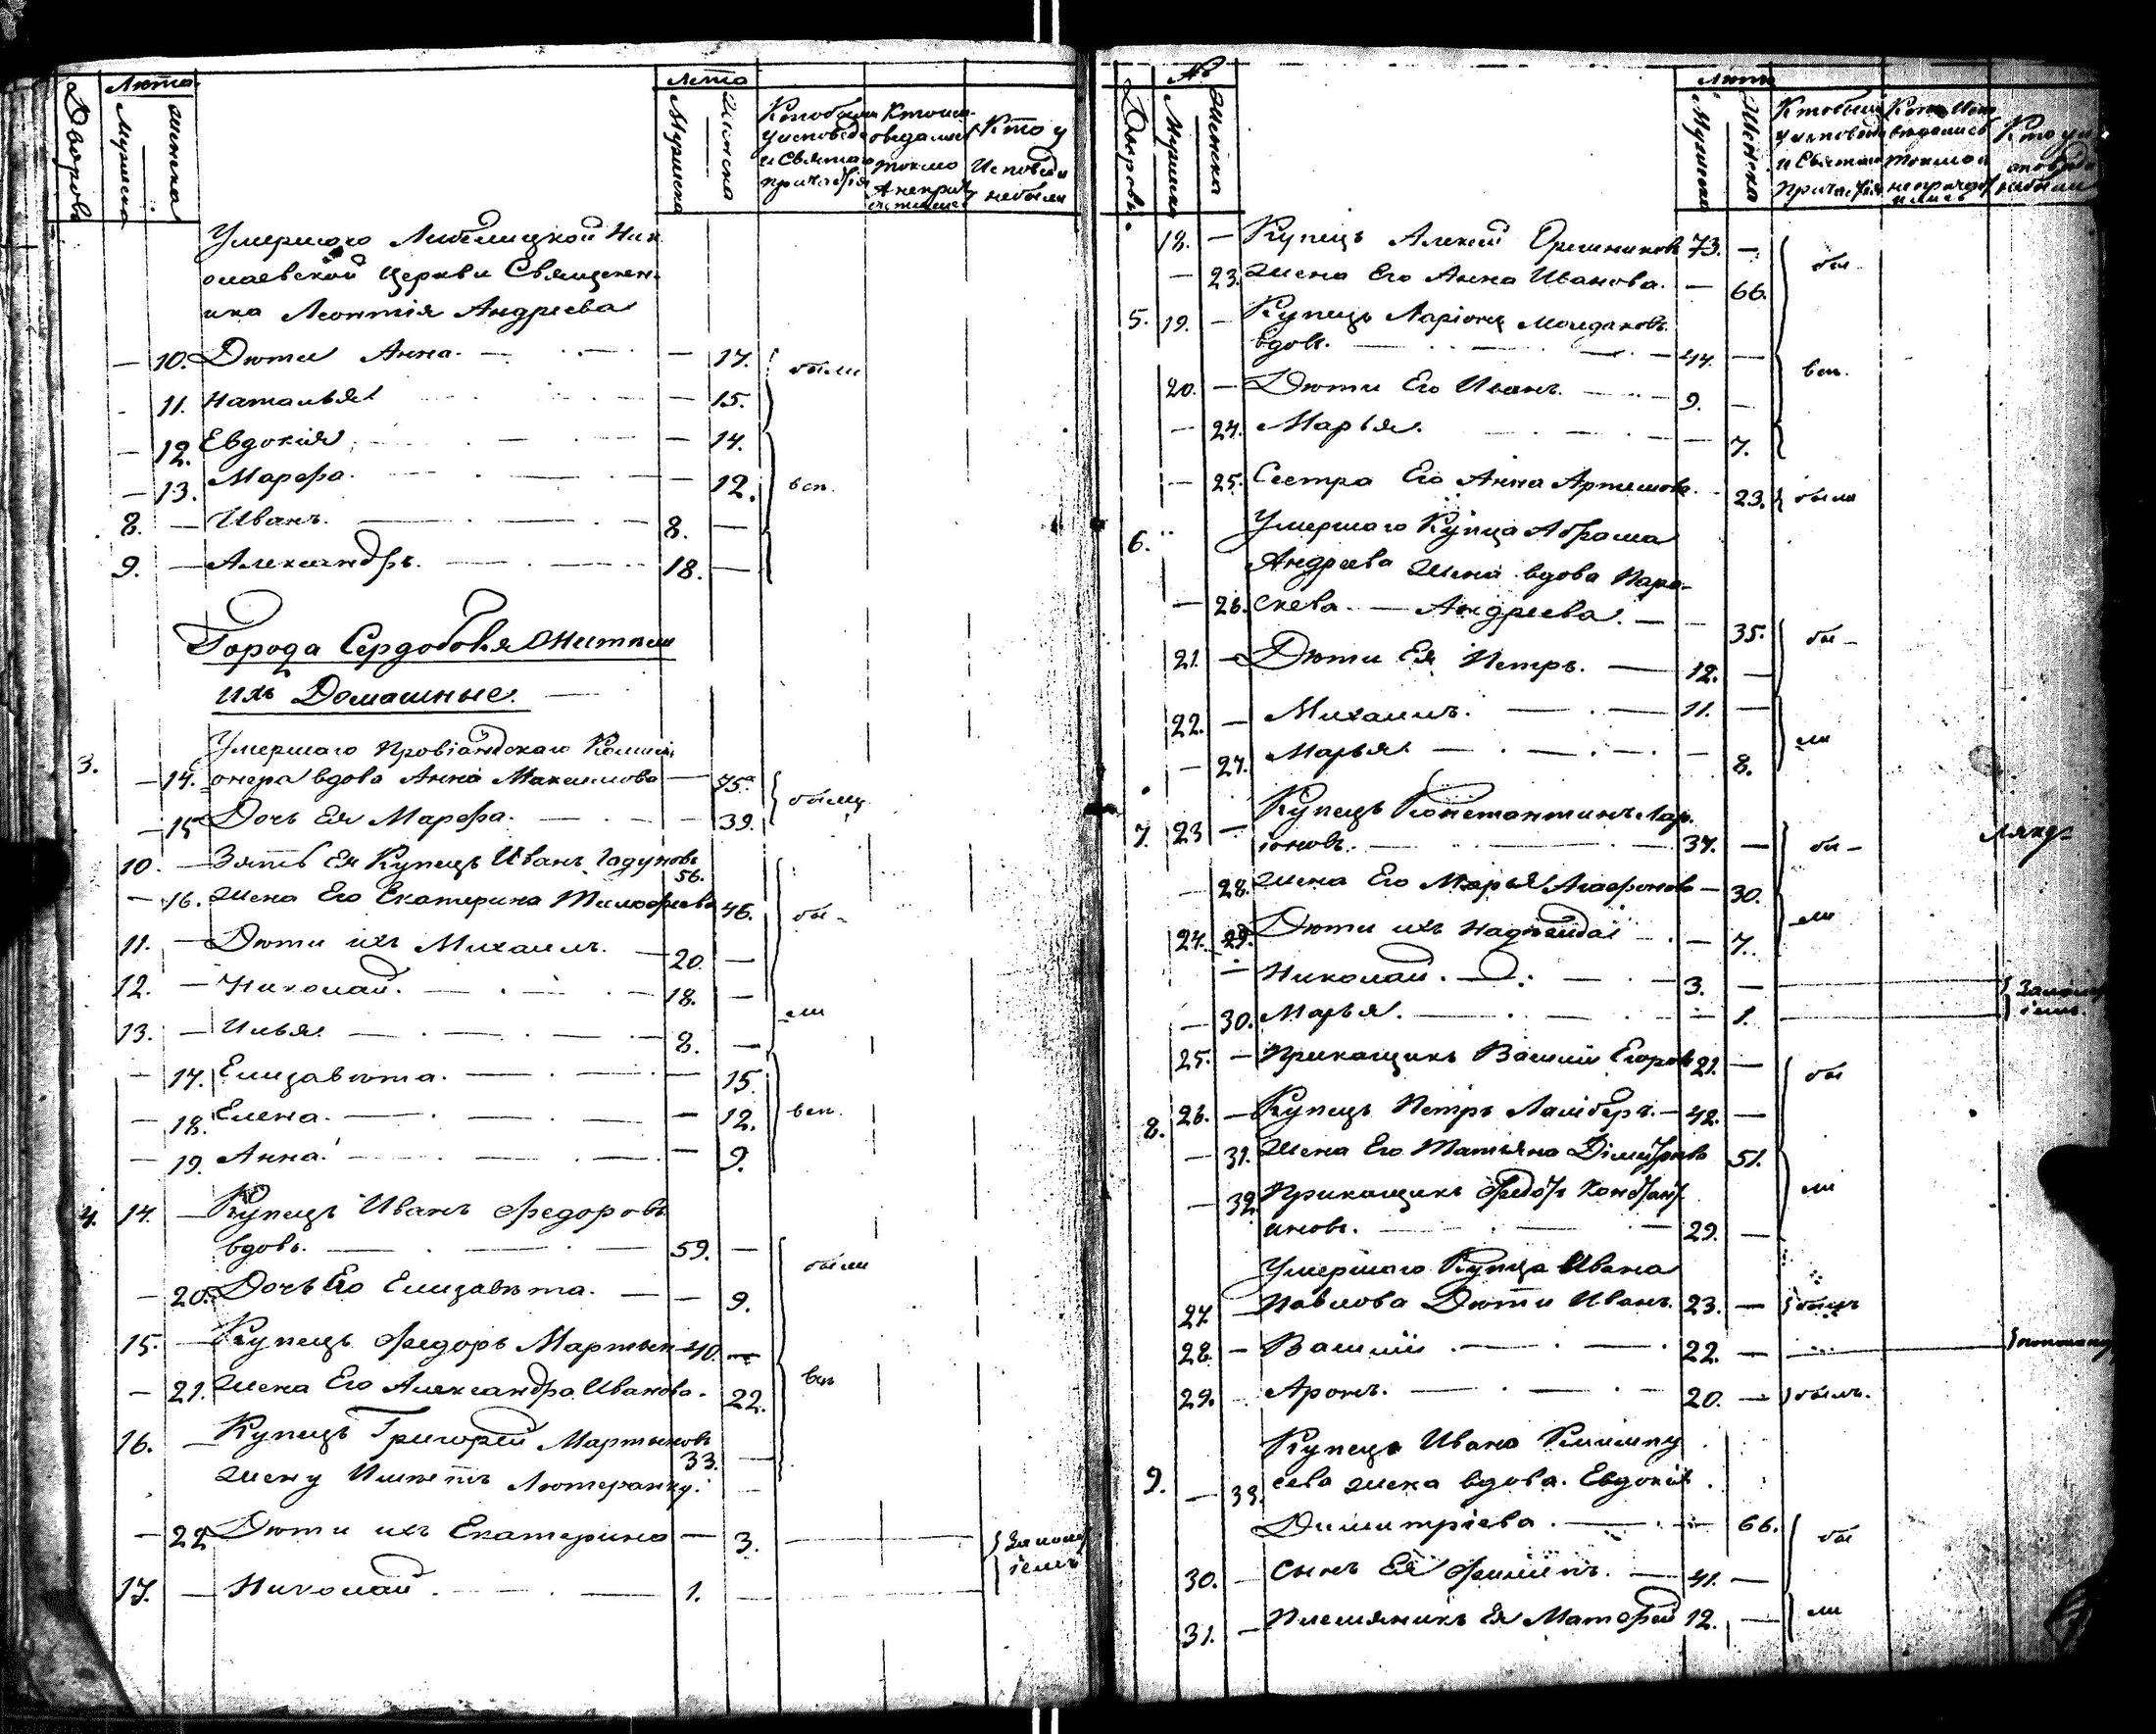 Дворовъ
Люта.
Мужеска
женска
Лета
Мужеска
Женска
Кто были
у исповеди
и Святаго
причастія
Кто испо-
ведались
токмо
а неприч
Кто у
Исповеди
небыли
Умершаго Либелицкой Ник
олаевской Церкви Священ-
ика Леонтія Андреева
— 10. Дюти Анна. — — 17. были
— 11. Наталья — 15.
— 12. Евдокія — 14.
— 13. Марфа. — 12. всп.
8. — Иванъ. — 8. —
9. — Александръ. — 18. —
Города Сердоболя Жители
ихъ Домашные.
3. Умершаго Провіандскаго Комиси
— 14. онера вдова Анна Максимова — 75.
— 15 Дочь Ея Марфа. — 39. были
10. — Зять Ея Купецъ Иванъ Годуновъ 56.
— 16. Жена Его Екатерина Тимофеева 46. бы-
11. — Дюти ихъ Михаилъ. — 20. —
12. — Николай. — 18. —
13. — Илья. — 8. — ли
— 17. Елизавюта. — 15.
— 18. Елена. — 12. всп.
— 19. Анна. — 9.
4. 14. — Купецъ Иванъ Федоровъ
вдовъ. — 59. — были
— 20. Дочь Его Елизавюта. — — 9.
15. — Купецъ Федоръ Мартын 40. —
— 21. Жена Его Александра Иванова. 22. всп
16. — Купецъ Григорей Мартыновъ 33. —
Жену Имюетъ Лютеранку.
— 22 Дюти ихъ Екатерина — 3.
17. — Николай. — 1. —
Дворовъ
№
Мужеска
Женска
Люта
Мужеска
Женска
Кто были
у исповеди
и Святаго
Причастія
Кто Испо
ведались
токмо а
непричаст
ились
Кто у и
споведи
небыли
18. — Купецъ Алексей Орешниковъ 73. —
— 23. Жена Его Анна Иванова. — 66. бы-
5. 19. — Купецъ Ларіонъ Молдаковъ.
вдовъ. — 44. — всп.
20. — Дюти Его Иванъ. — 9. —
— 24. Марья. — 7.
— 25. Сестра Его Анна Артемьова. 23. была
6. Умершаго Купца Абрама
Андреева Жена вдова Пара-
— 26. скева. — Андреева. — 35. бы-
21. — Дюти Ея Петръ. — 12. —
22. — Михаилъ. — 11. —
— 27. Марья — 8. ли
7. 23 — Купецъ Константинъ Лар
іоновъ. — 37. — бы-
— 28. Жена Его Марья Агафонова — 30.
24. 29. Дюти ихъ Надежда — 7. ли
— Николай. — 3. —
— 30. Марья. — 1.
25. — Прикащикъ Василій Егоровъ 21. — бы
8. 26. — Купецъ Петръ Ламберъ. — 42. —
— 31. Жена Его Татьяна Дімитріева 51.
— 32. Прикащикъ Федоръ Констант
иновъ. — 29. — ли
Умершаго Купца Ивана
27. Павлова Дюти Иванъ. 23. — былъ
28. — Василій — 22. —
29. Аронъ. — 20. — былъ.
Купецъ Ивана
9. — 33. сева жена вдова. Евдокія
Димитріева. — 66. бы
30. — Сынъ Ея Филипъ. — 41. —
31. — Племяникъ Ея Матфей 12. — ли